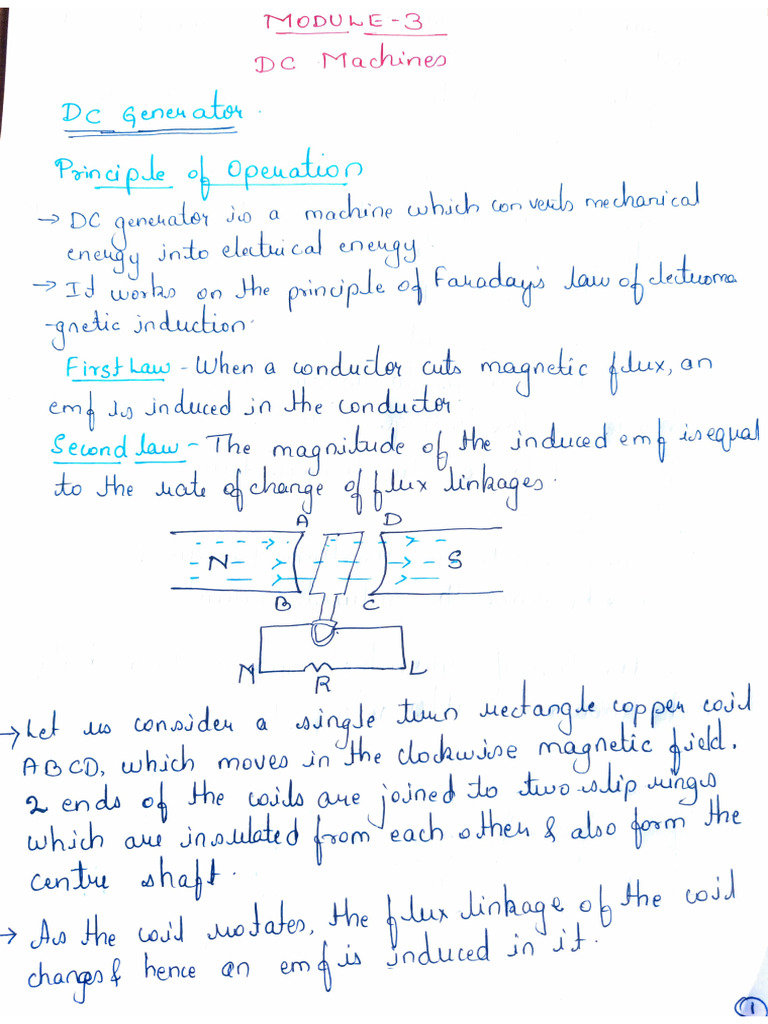 MODULE-3
DC Machines
DC Generator.
Principle of Operation
→ DC generator is a machine which converts mechanical
energy into electrical energy.
→ It works on the principle of Faraday's law of electroma
-gnetic induction.
First Law - When a conductor cuts magnetic flux, an
emf is induced in the conductor
Second law - The magnitude of the induced emf is equal
to the rate of change of flux linkages.
A D
N S
B C
M R L
→ Let us consider a single turn rectangle copper coil
ABCD, which moves in the clockwise magnetic field.
2 ends of the coils are joined to two slip rings
which are insulated from each other & also form the
centre shaft.
→ As the coil rotates, the flux linkage of the coil
changes & hence an emf is induced in it.
1